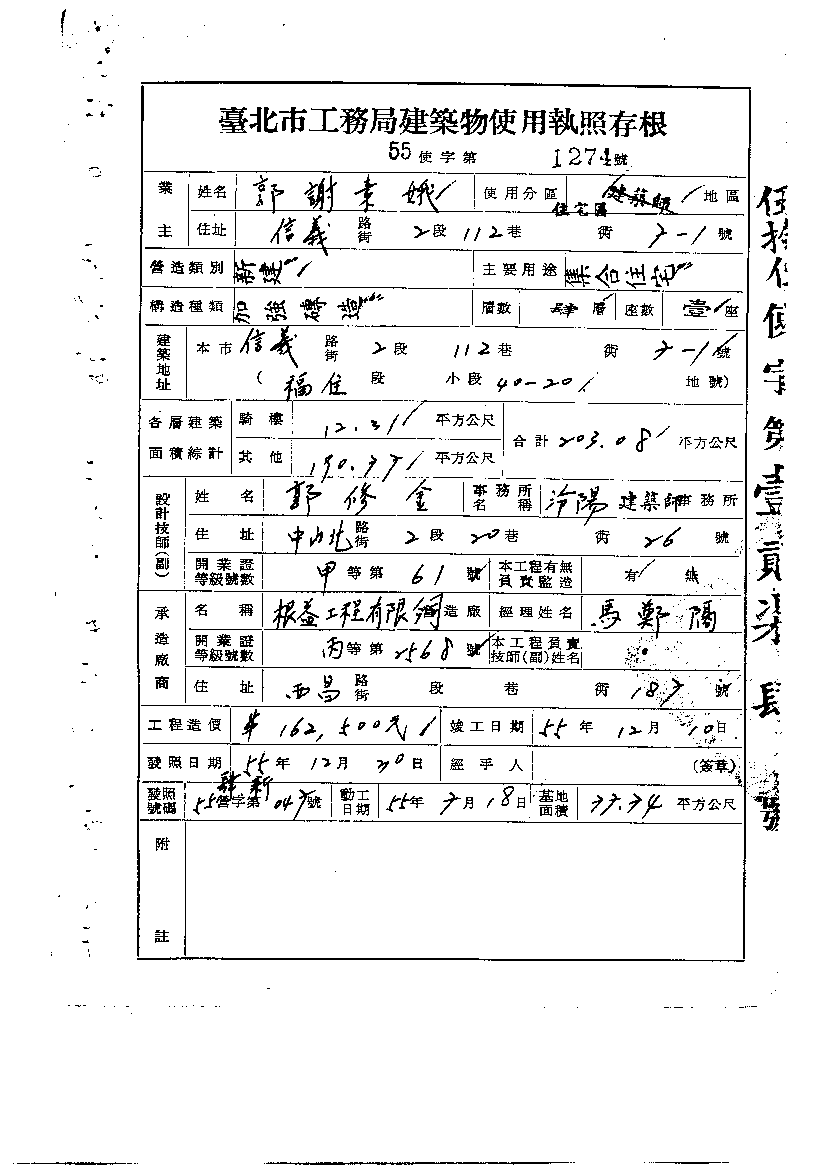 臺北市工務局建築物使用執照存根
55使字第 1274號
業主 姓名 郭謝素娥 使用分區 住宅區 地區
住址 信義路街 2段 112巷 衖 7-1號
營造類別 新建 主要用途 集合住宅
構造種類 加強磚造 層數 肆層 座數 壹座
建築地址 本市 信義路街 2段 112巷 衖 7-1號
(福住段 小段 40-20 地號)
各層建築面積綜計 騎樓 12.31平方公尺 合計 203.08平方公尺
其他 190.77平方公尺
設計技師(副) 姓名 郭修金 事務所名稱 汾陽建築師事務所
住址 中山北路街 2段 20巷 衖 26號
開業證等級號數 甲等第 61號 本工程有無負責監造 有 無
承造廠商 名稱 根益工程有限公司 營造廠 經理姓名 馬鄭陽
開業證等級號數 丙等第 2568號 本工程負責技師(副)姓名
住址 西昌路街 段 巷 衖 187號
工程造價 162,500元 竣工日期 55年 12月 10日
發照日期 55年 12月 20日 經手人 (簽章)
發照號碼 55營字第 047號 動工日期 55年 7月 18日 基地面積 77.74平方公尺
附註